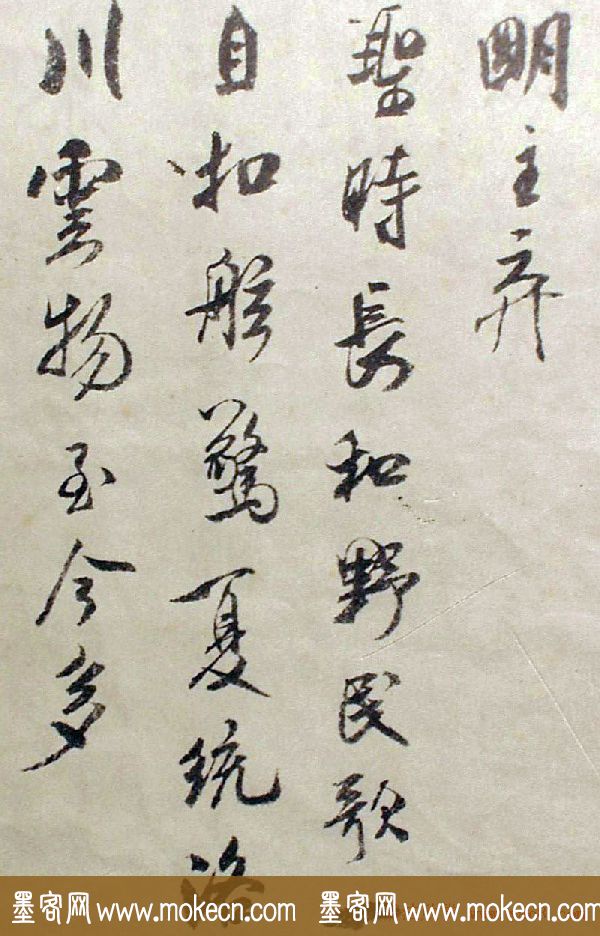 明主弃
聖時長和野民歌
自扣舷驚夏統洛
川雲物至今多
墨客网 www.mokecn.com 墨客网 www.mokecn.com